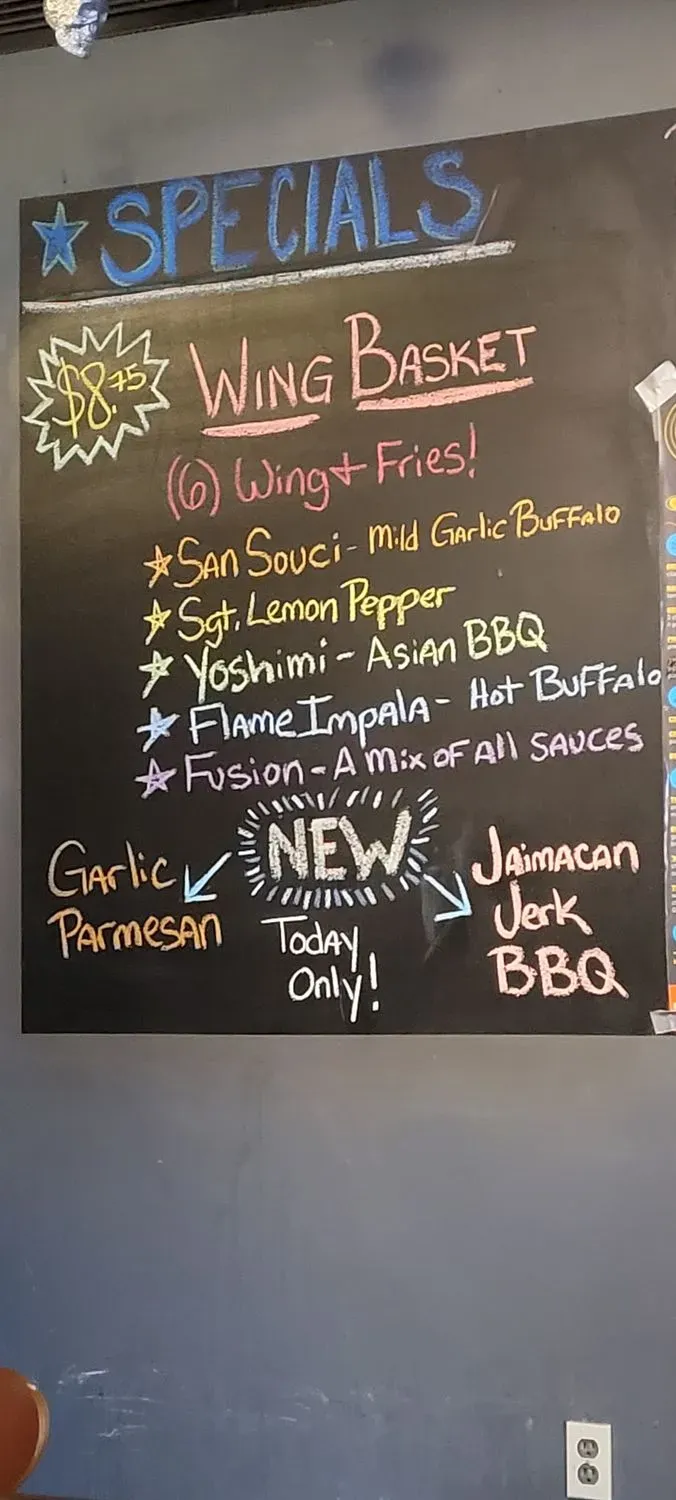 SPECIALS
$8.75
WING BASKET
(6) Wing + Fries!
San Souci - Mild Garlic Buffalo
Sgt. Lemon Pepper
Yoshimi - Asian BBQ
Flame Impala - Hot Buffalo
Fusion - A mix of all sauces
NEW
Garlic
Parmesan
Today
Only!
Jaimacan
Jerk
BBQ